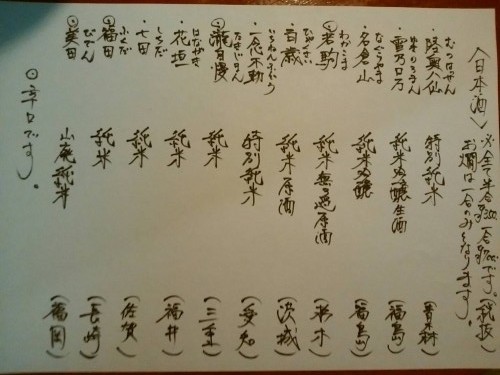 〈日本酒〉
※全て半合 一合 です。(税抜)
お燗は一合のみとなります。
むつはっせん
・陸奥八仙 特別純米 (青森)
ゆきのろまん
・雪乃ロ万 純米吟醸生酒 (福島)
なぐらやま
・名倉山 純米吟醸 (福島)
わかこま
◎若駒 純米無ろ過原酒 (栃木)
ひゃくさい
・百歳 純米原酒 (茨城)
いちねんふどう
・一念不動 特別純米 (愛知)
たきじまん
◎瀧自慢 純米 (三重)
はながき
・花垣 純米 (福井)
しちだ
・七田 純米 (佐賀)
ふくだ
◎福田 純米 (長崎)
びでん
◎美田 山廃純米 (福岡)
◎辛口です。